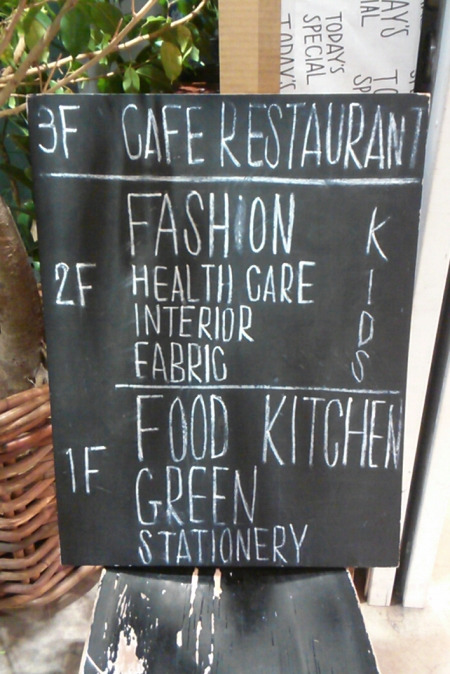 TODAY'S
SPECIAL
TODAY'S
3F CAFE RESTAURANT
2F FASHION KIDS
HEALTH CARE
INTERIOR
FABRIC
1F FOOD KITCHEN
GREEN
STATIONERY